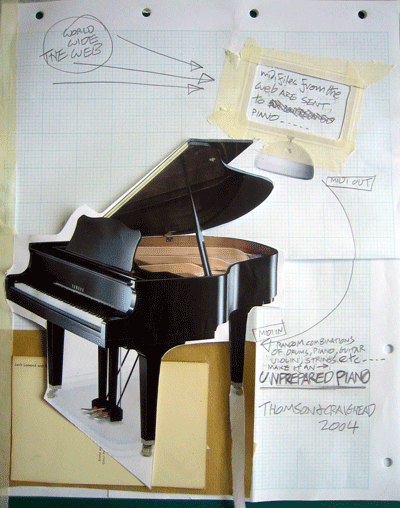 WORLD
WIDE
THE WEB
midi files from the
WEB ARE SENT
to
PIANO -----
MIDI OUT
YAMAHA
MIDI IN
RANDOM COMBINATIONS
OF DRUMS, PIANO, GUITAR
VIOLIN, STRINGS etc ----
MAKE IT AN →
UNPREPARED PIANO
THOMSON & CRAIGHEAD
2004